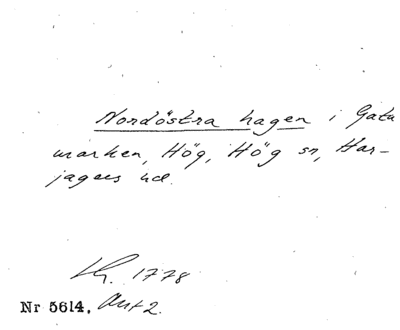 Nordöstra hagen i Gata
marken, Hög, Hög sn, Har-
jagers hd.
Lh. 1778
Nr 5614. Akt 2.